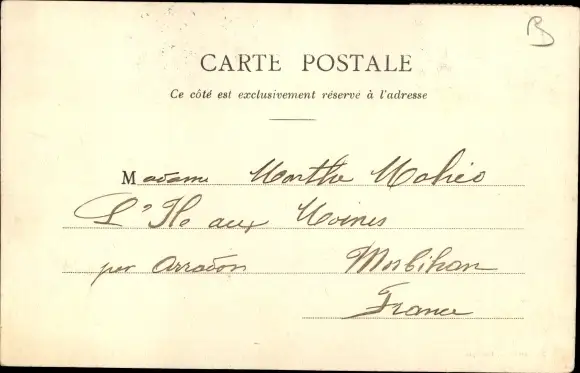 B
CARTE POSTALE
Ce côté est exclusivement réservé à l'adresse
Madame Marthe Mahéo
L'Ile aux Moines
par Arradon Morbihan
France